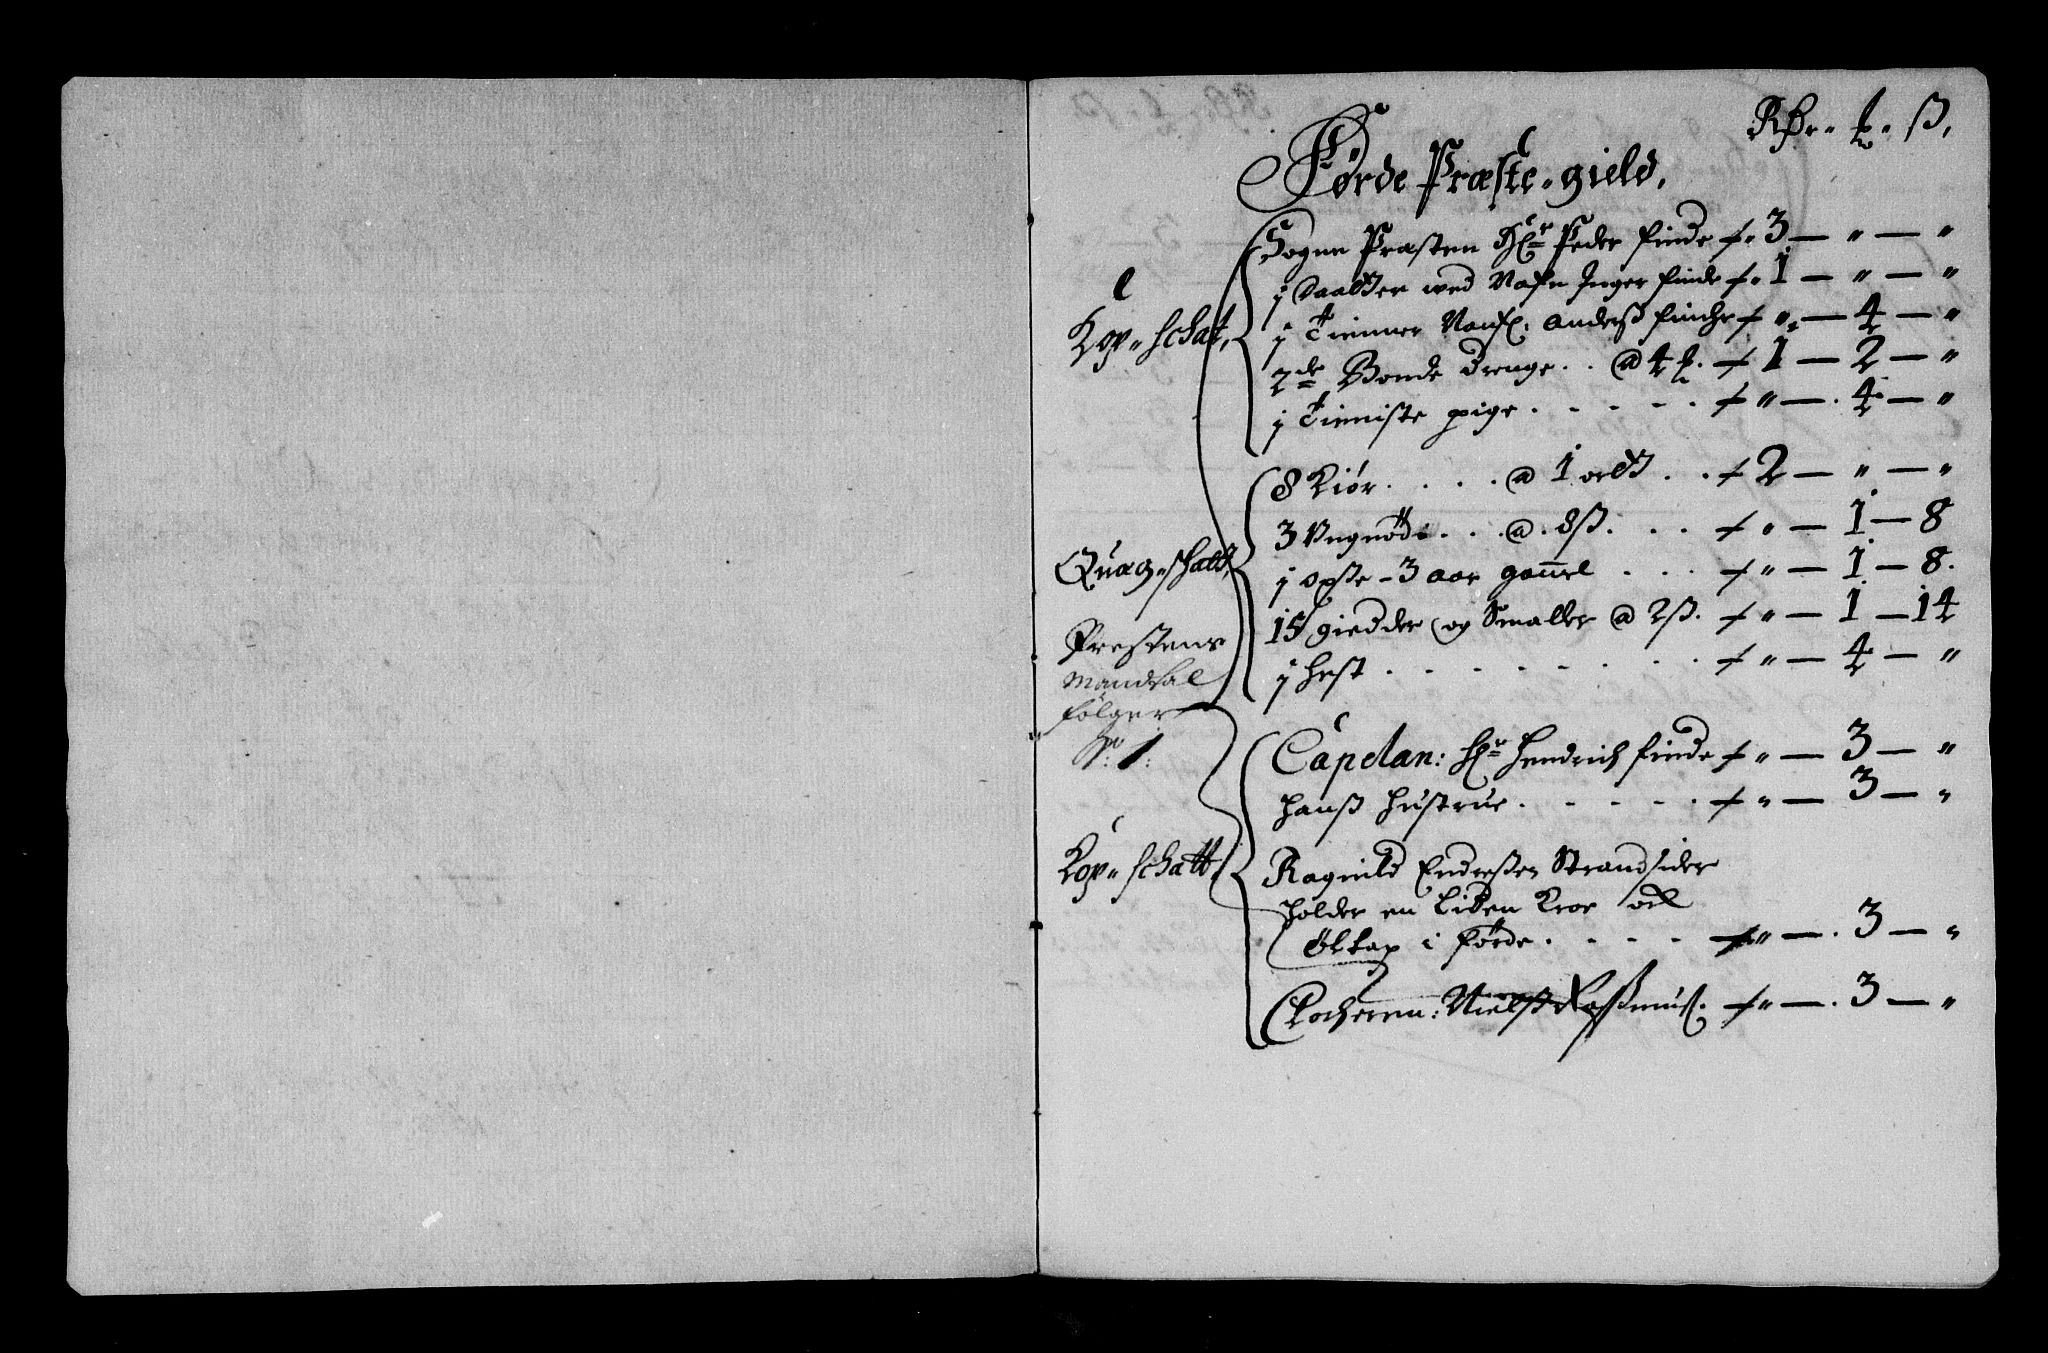 Rdr. ₰. ß.
Førde Præste-gield,
Kop-schat,
Sogne Præsten Hr Peder finde + 3 — " — "
j Daatter wed Nafn Inger finde + 1 — " — "
j Tienner Nafl. Anderß finche + " — 4 — "
2de Bonde drenge . . @ 4 ₰. + 1 — 2 — "
j Tieniste pige . . . . . + " — 4 — "
Quæg-schatt,
8 Kiør . . . . @ 1 ortt . . + 2 — " — "
3 Ungnød . . . @ . 8 ß. . . + " — 1 — 8
j oxse - 3 aar gam̄el . . . + " — 1 — 8.
15 giedder og Smaller @ 2 ß. + " — 1 — 14
j hest . . . . . . . . + " — 4 — "
Prestens
Mandtal
følger
No: 1:
Kop-schatt,
Capelan: Hr Hendrich finde + " — 3 — "
Hanß Hustrue . . . . . + " — 3 — "
Ragnild Endreßen Strandsider
holder en Liden Kroe och
øltap i førde . . . . + " — 3 — "
Clocheren: Nielß Raßmuß. + " — 3 — "